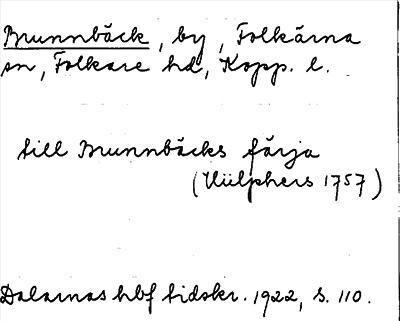 Brunnbäck, by, Folkärna
sn, Folkare hd, Kopp. l.
till Brunnbäcks färja
(Hülphers 1757)
Dalarnas hbf tidskr. 1922, s. 110.